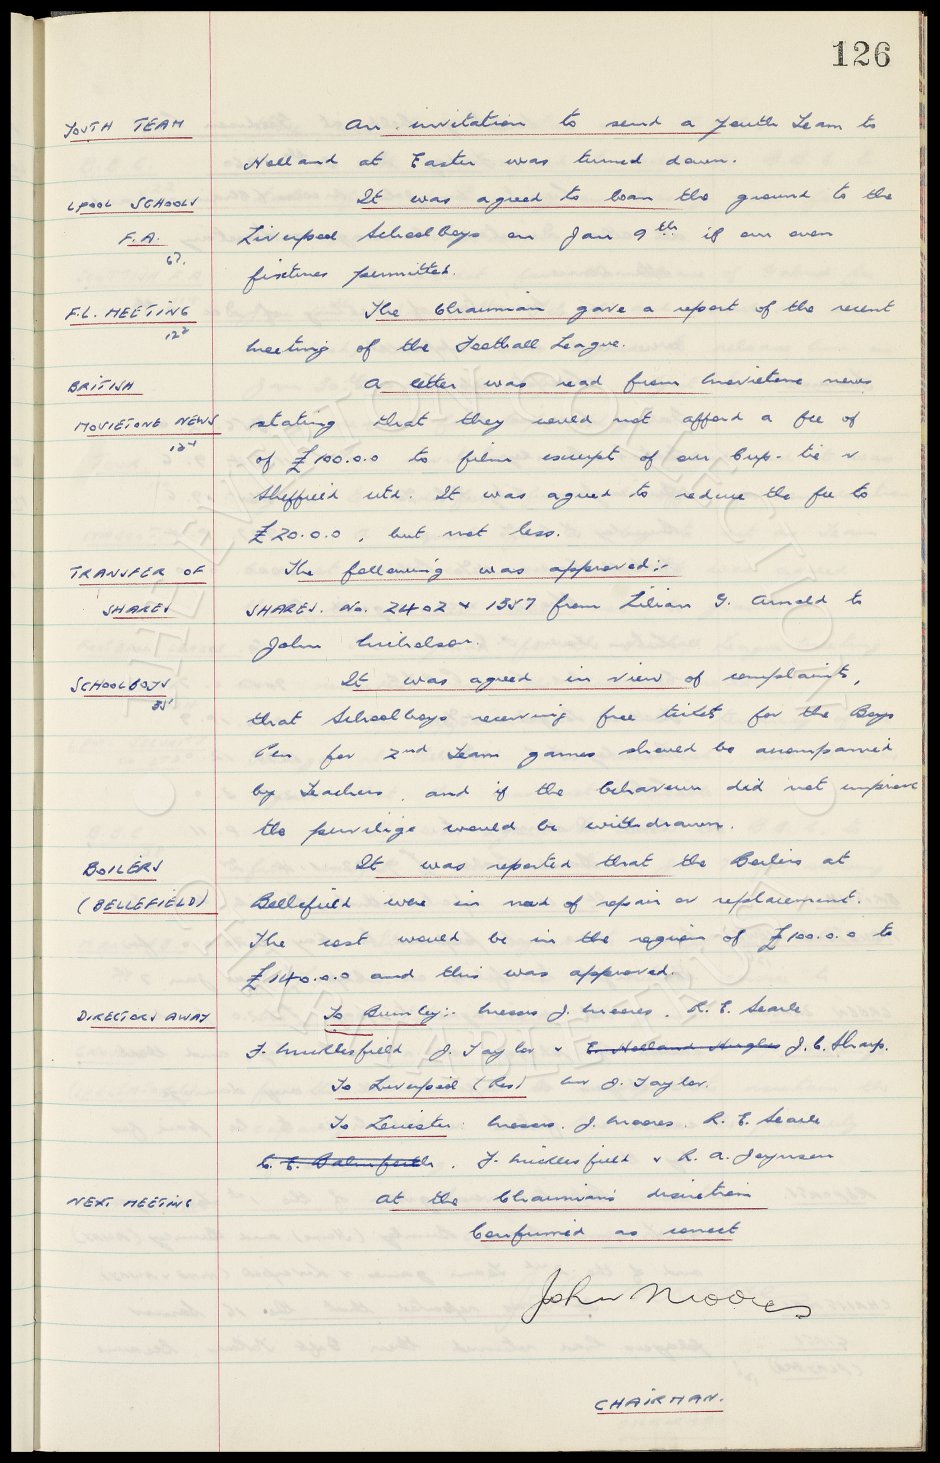 126
YOUTH TEAM An invitation to send a Youth Team to
Holland at Easter was turned down.
LPOOL SCHOOLS It was agreed to loan the ground to the
F.A. Liverpool Schoolboys on Jan 9th if our own
67. fixtures permitted.
F.L. MEETING The Chairman gave a report of the recent
122 meeting of the Football League.
BRITISH A letter was read from Movietone news
MOVIETONE NEWS stating that they could not afford a fee of
124 of £100.0.0 to film excerpt of our Cup-tie v
Sheffield Utd. It was agreed to reduce the fee to
£20.0.0, but not less.
TRANSFER OF The following was approved:-
SHARES SHARES. No. 2402 & 1357 from Lilian G. Arnold to
John Nicholson.
SCHOOLBOYS It was agreed in view of complaints,
35 that Schoolboys receiving free tickets for the Boys
Pen for 2nd Team games should be accompanied
by Teachers, and if the behaviour did not improve
the privilige would be withdrawn.
BOILERS It was reported that the Boilers at
(BELLEFIELD) Bellefield were in need of repair or replacement.
The cost would be in the region of £100.0.0 to
£140.0.0 and this was approved.
DIRECTORS AWAY To Burnley:- Messrs J. Moores. R. E. Searle
F. Micklesfield J. Taylor & E. Holland Hughes J. C. Sharp.
To Liverpool (Res) Mr J. Taylor.
To Leicester: Messrs. J. Moores. R. E. Searle
C. E. Balmforth, F. Micklesfield & R. A. Joynson
NEXT MEETING At the Chairman's discretion
Confirmed as correct
John Moores
CHAIRMAN.